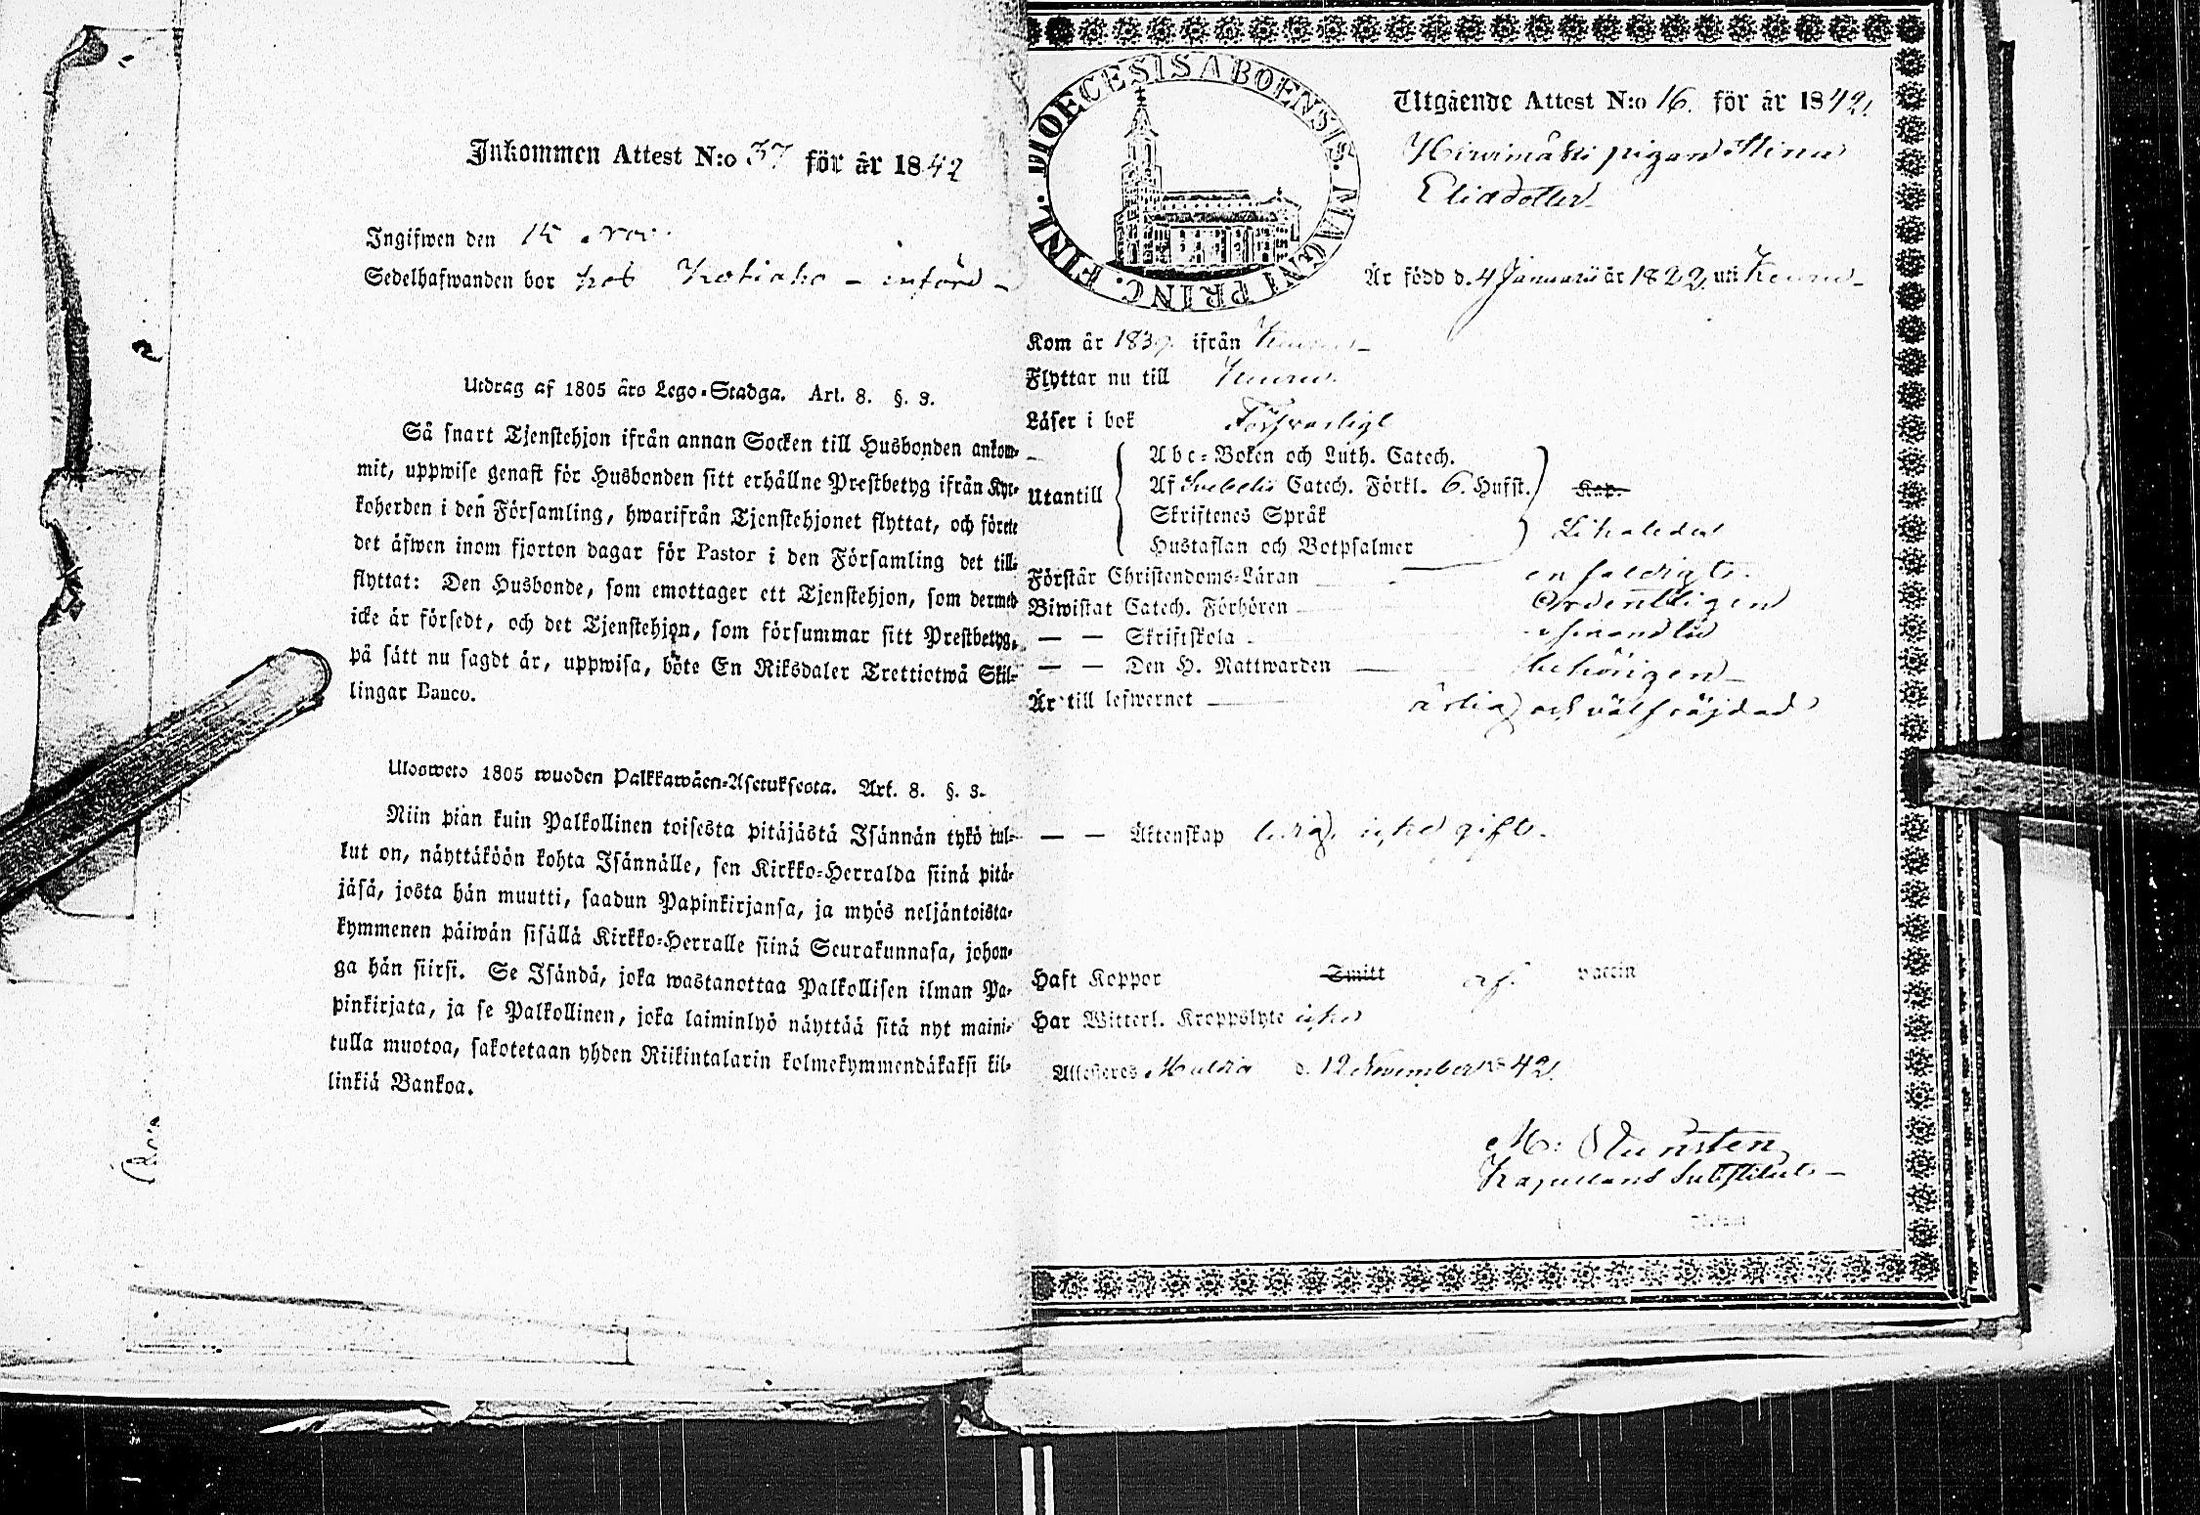 Inkommen Attest N:o 37 för år 1842
Ingifwen den 15 Nov.
Sedelhafwanden bor hos Kotiaho – införd –
Utdrag af 1805 års Lego-Stadga. Art. 8. §. 3.
Så snart Tjenstehjon ifrån annan Socken till Husbonden ankom-
mit, uppwise genast för Husbonden sitt erhållne Prestbetyg ifrån Kyr-
koherden i den Församling, hwarifrån Tjenstehjonet flyttat, och förete
det äfwen inom fjorton dagar för Pastor i den Församling det till-
flyttat: Den Husbonde, som emottager ett Tjenstehjon, som dermed
icke är försedt, och det Tjenstehjon, som försummar sitt Prestbetyg,
på sätt nu sagdt är, uppwisa, böte En Riksdaler Trettiotwå Skil-
lingar Banco.
Ulosweto 1805 wuoden Palkkawäen-Asetuksesta. Art. 8. §. 3.
Niin pian kuin Palkollinen toisesta pitäjästä Isännän tykö tul-
lut on, näyttäköön kohta Isännälle, sen Kirkko-Herralda siinä pitä-
jäsä, josta hän muutti, saadun Papinkirjansa, ja myös neljäntoista-
kymmenen päiwän sisällä Kirkko-Herralle siinä Seurakunnasa, johon-
ga hän siirsi. Se Isändä, joka wastanottaa Palkollisen ilman Pa-
pinkirjata, ja se Palkollinen, joka laiminlyö näyttää sitä nyt maini-
tulla muotoa, sakotetaan yhden Riikintalarin kolmekymmendäkaksi kil-
linkiä Bankoa.
DIOECESIS ABOENSIS. MAGNI PRINC. FINL.
Utgående Attest N:o 16. för år 1842.
pigan Stina
Eliadotter
Är född d. 4 Januarii år 1822, uti Keuru
Kom år 1839 ifrån Keuru
Flyttar nu till Keuru
Läser i bok Försvarligt
Utantill
Abc-Boken och Luth. Catech.
Af Svebelii Catech. Förkl. 6. Hufst.
Skriftenes Språk
Hustaflan och Botpsalmer
Kap.
Likaledes
Förstår Christendoms-Läran enfaldigt.
Biwistat Catech. Förhören Ordentligen
— — Skriftskola
— — Den H. Nattwarden behörigen
Är till lefwernet ärlig och välfräjdad
— — Äktenskap ledig, icke gift.
Haft Koppor Smitt af vaccin
Har Witterl. Kroppslyte icke
Attesteres Multia d. 12 November 1842.
M: Stunsten
Kapellans Substitut